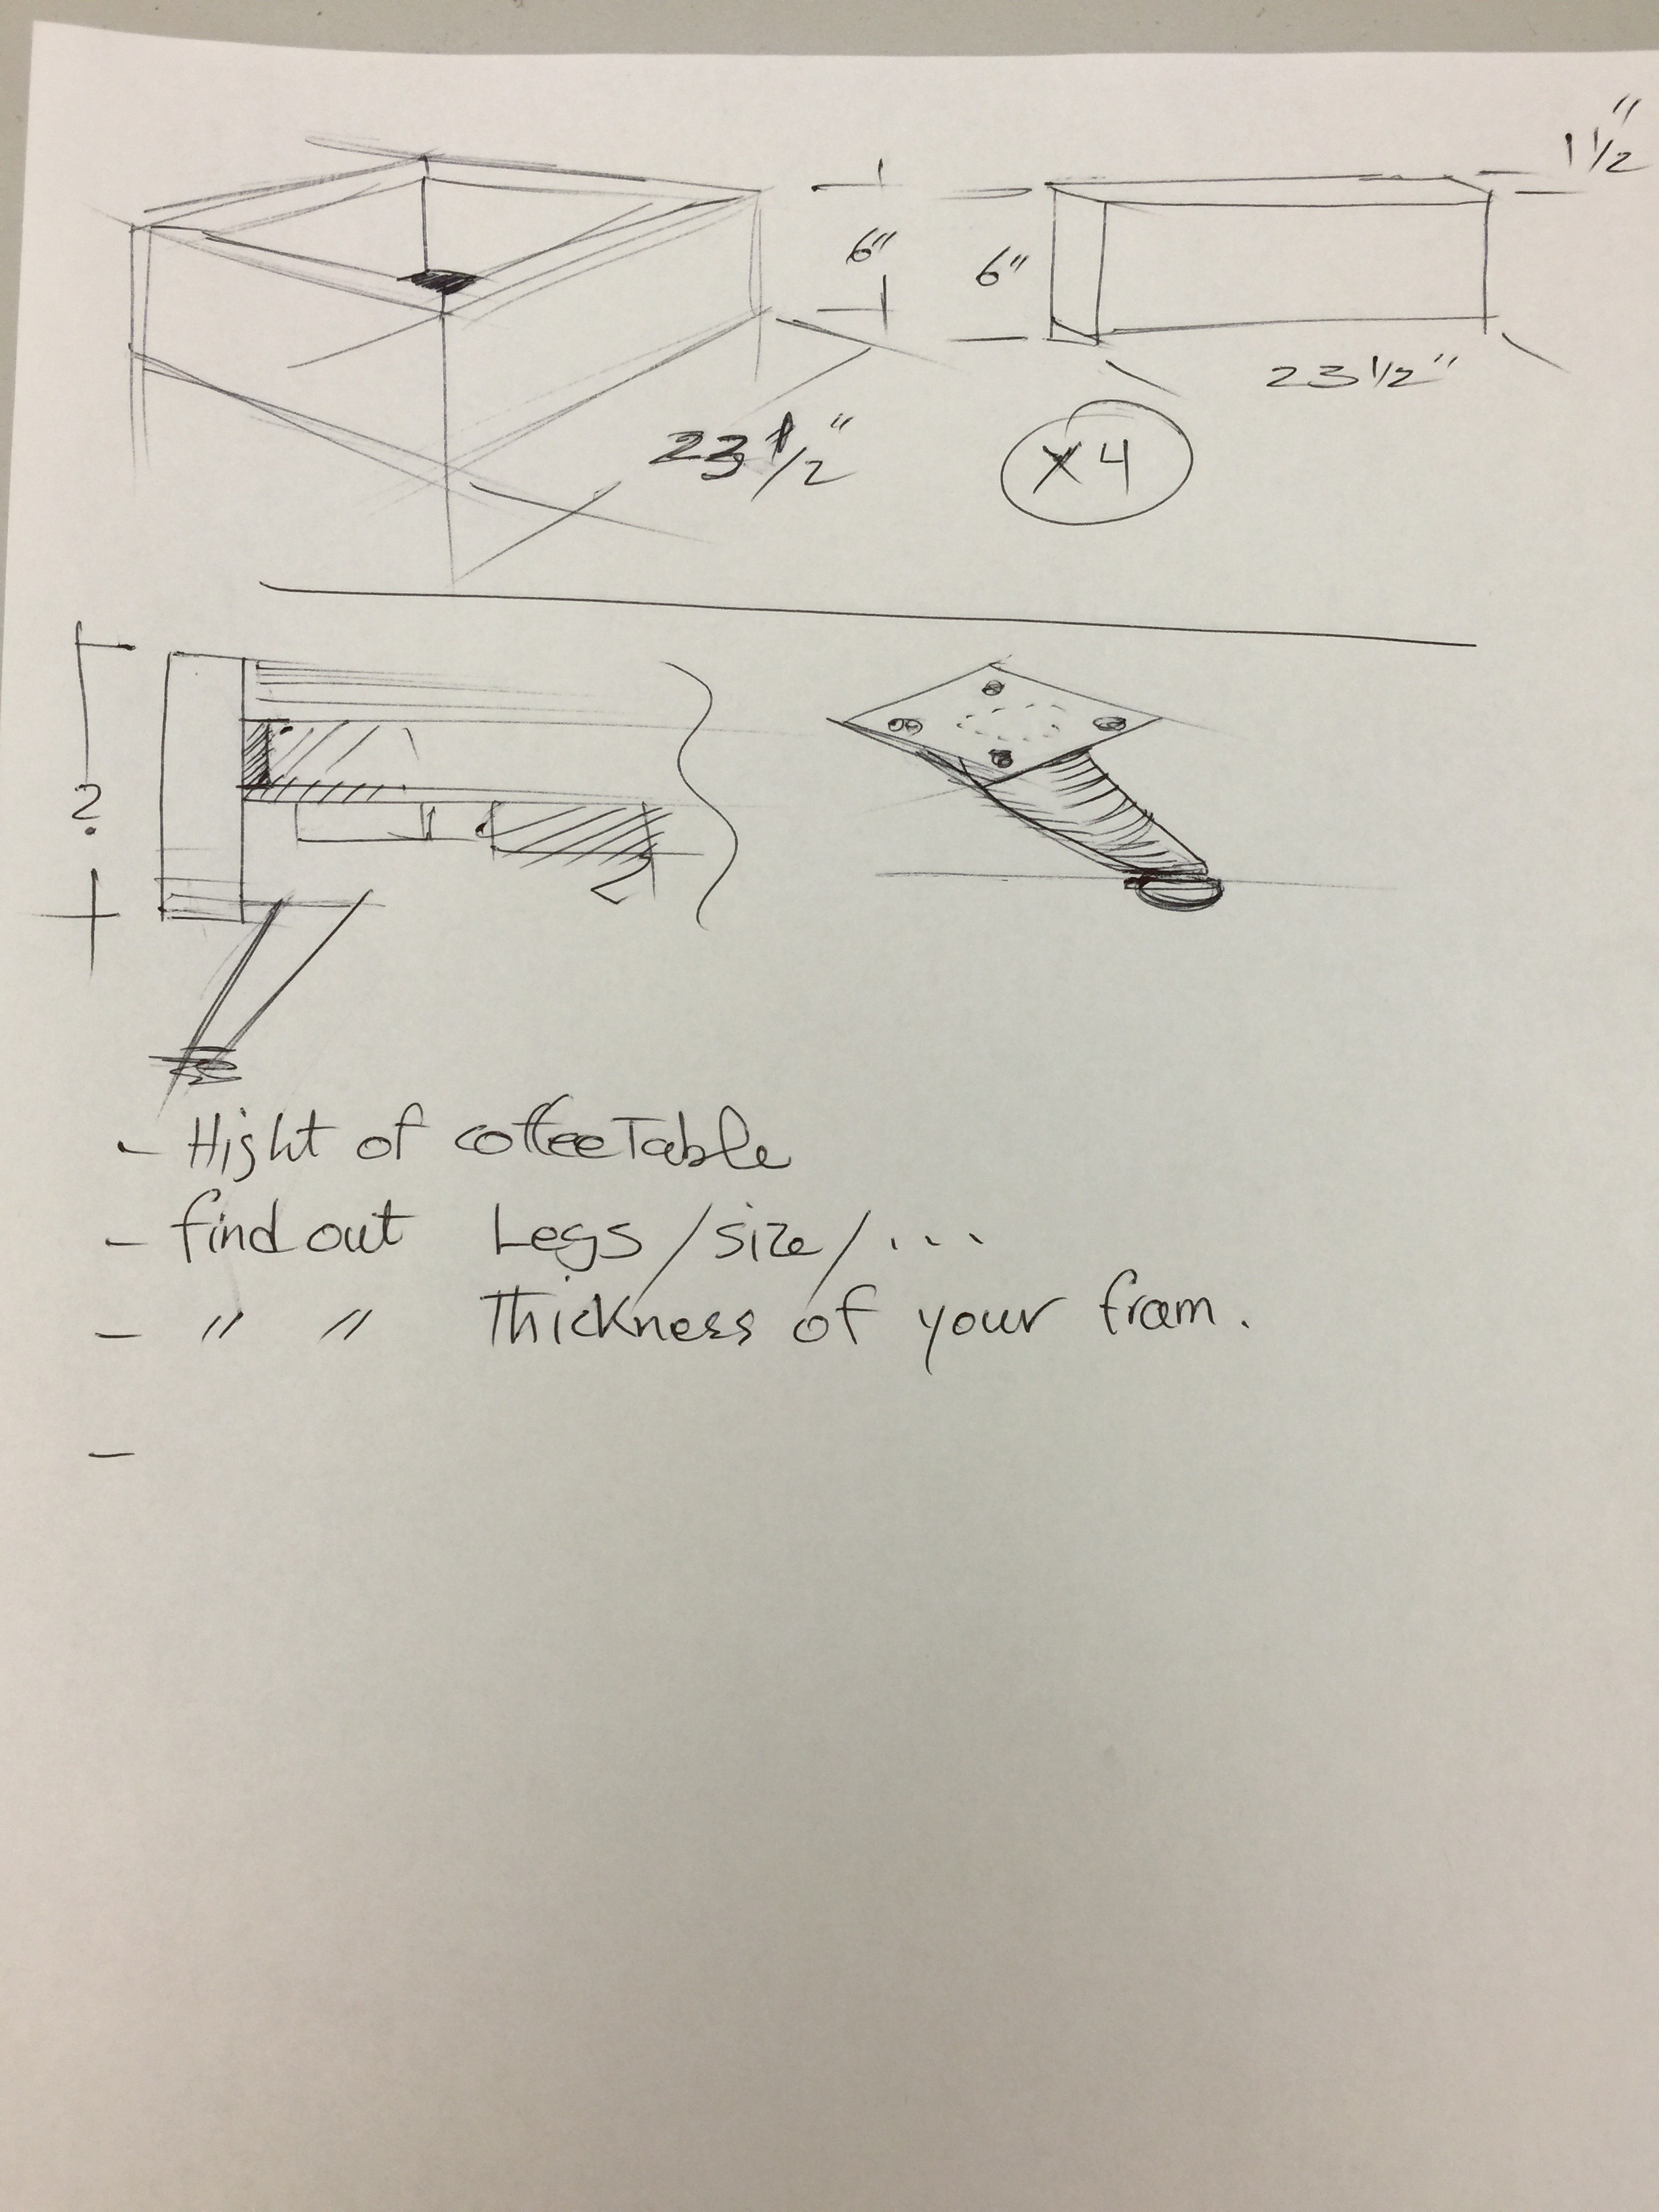 1 1/2"
6"
6"
23 1/2"
23 1/2"
X4
?
- Hight of coffee Table
- find out Legs/size/...
- " " Thickness of your fram.
-